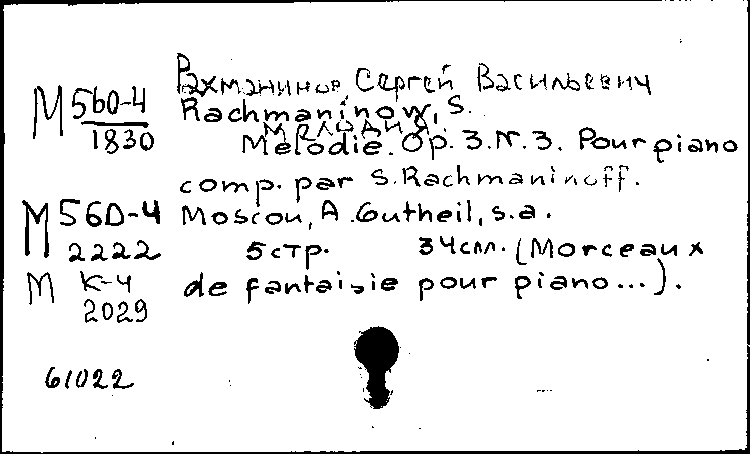 Рахманинов, Сергей Васильевич
М 560-4
1830
Rachmaninow, S.
Мелодия
Mélodie. Op. 3. N. 3. Pour piano
comp. par S. Rachmaninoff.
М 560-4
2222
Moscou, A. Gutheil, s.a.
5 стр. 34 см. (Morceaux
М К-4
2029
de fantaisie pour piano...).
61022